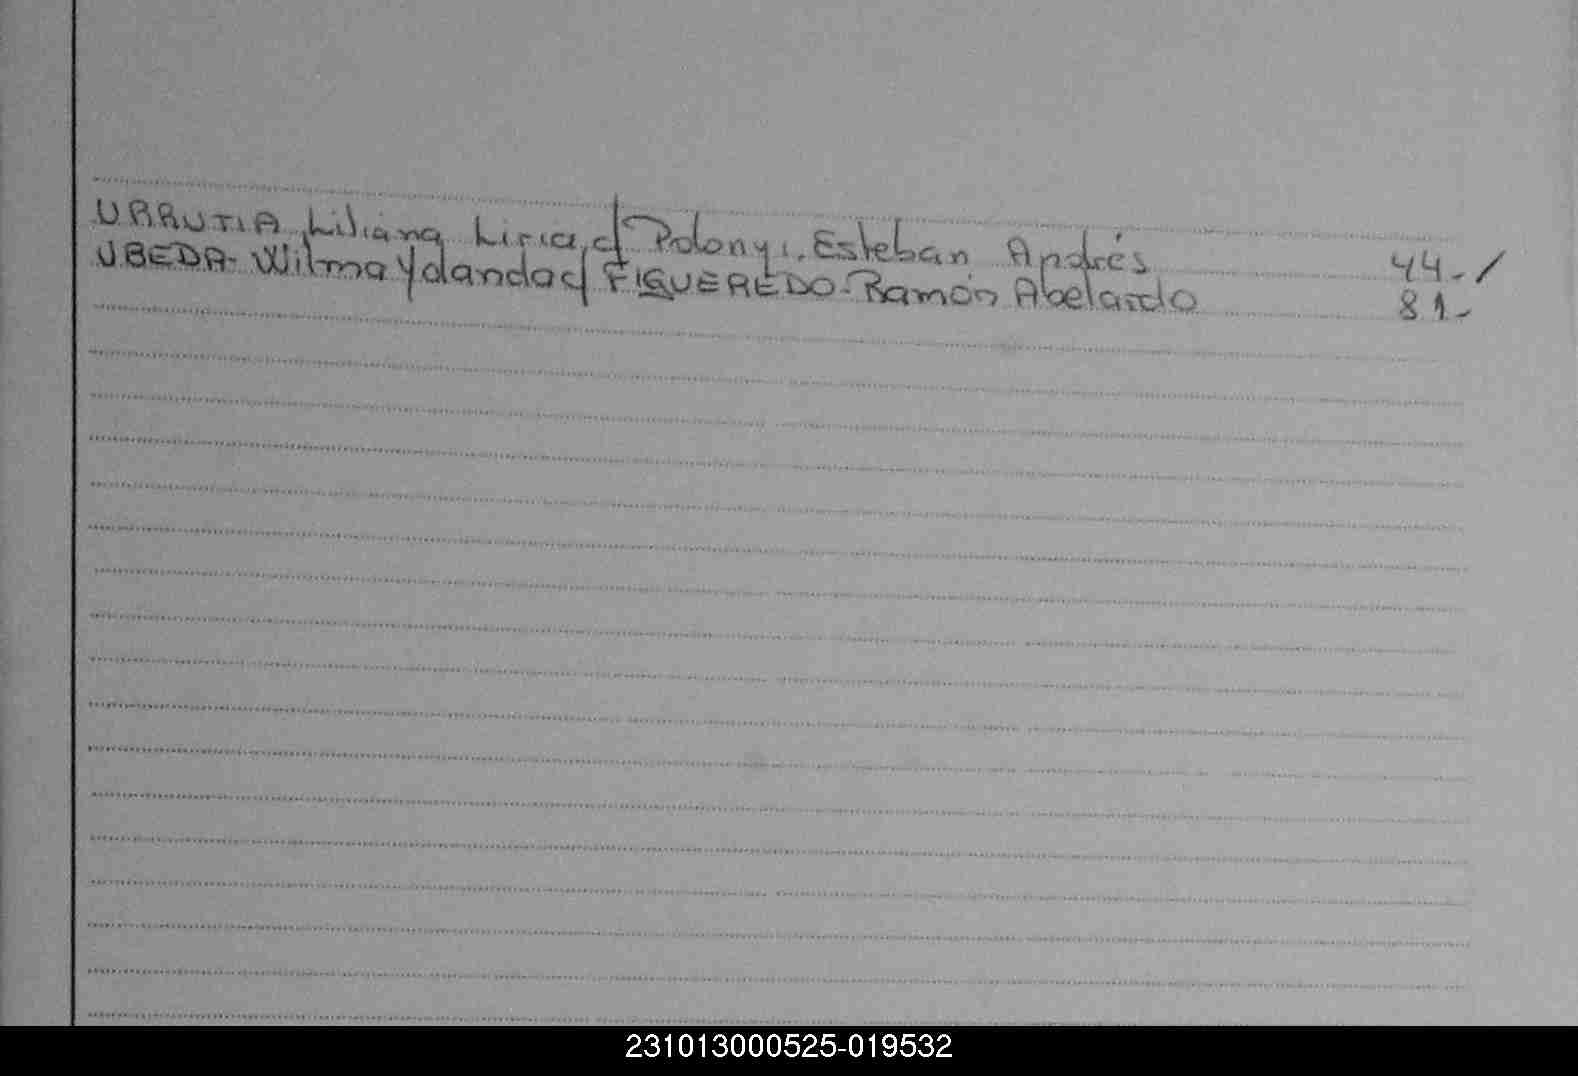 URRUTIA, Liliana Liria, c/ Polonyi, Esteban Andrés 44.- /
UBEDA- Wilma Yolanda c/ FIGUEREDO- Ramón Abelardo 81-
231013000525-019532